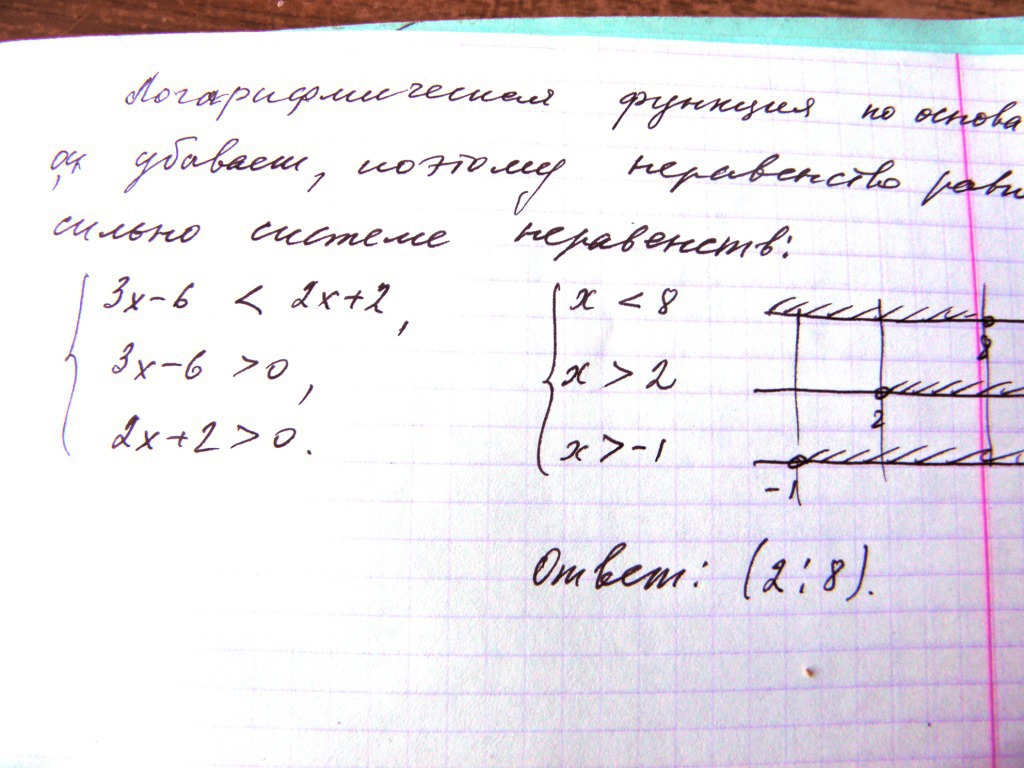 Логарифмическая функция по основа
убывает, поэтому неравенство равно
сильно системе неравенств:
3x-6 < 2x+2,
3x-6 >0,
2x+2>0.
x < 8
x > 2
x > -1
8
2
-1
Ответ: (2;8).